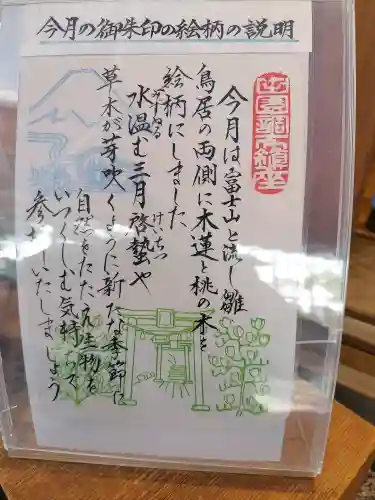 今月の御朱印の絵柄の説明
今月は富士山と流し雛
鳥居の両側に木蓮と桃の木を
絵柄にしました
水温む三月啓蟄や
みずぬるむ
けいちつ
草木が芽吹くように新たな季節に
自然をたたえ生物を
いつくしむ気持ちで
参むいたしましょう